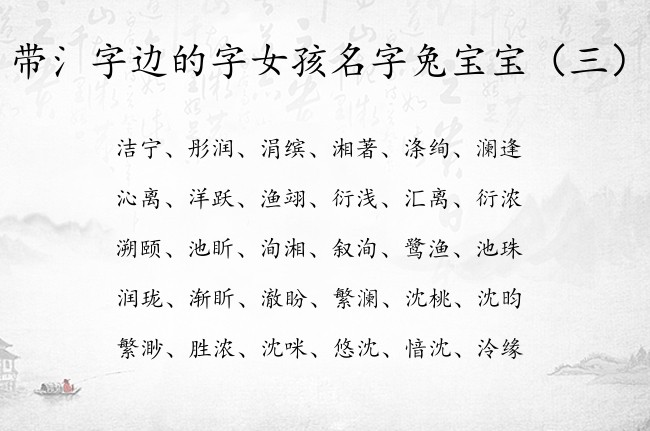 带氵字边的字女孩名字兔宝宝（三）
洁宁、彤润、涓缤、湘著、涤绚、澜逢
沁离、洋跃、渔翊、衍浅、汇离、衍浓
溯颐、池昕、洵湘、叙洵、鹭渔、池珠
润珑、渐昕、澈盼、繁澜、沈桃、沈昀
繁渺、胜浓、沈咪、悠沈、愔沈、泠缘